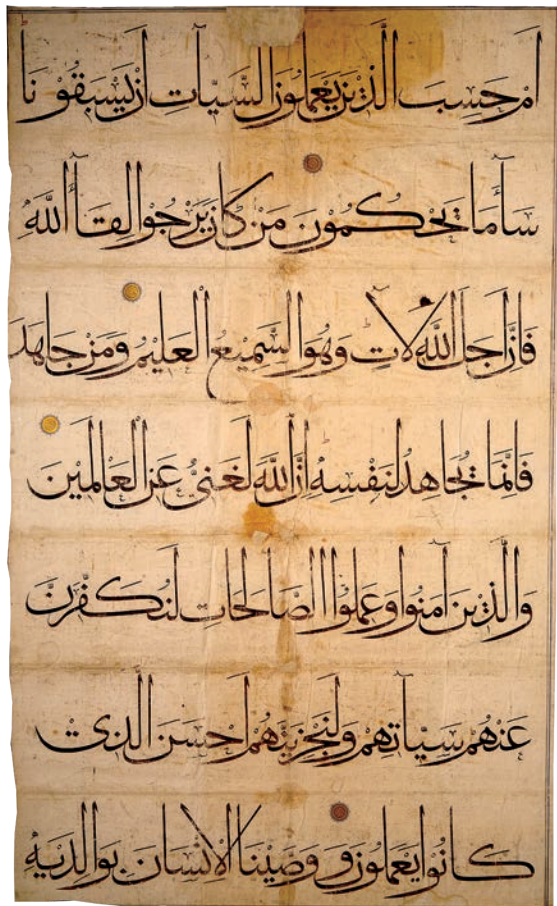 أم حسب الذين يعملون السيآت أن يسبقونا
سآء ما يحكمون من كان يرجوا لقآء الله
فإن أجل الله لآت وهو السميع العليم ومن جاهد
فإنما يجاهد لنفسه إن الله لغني عن العالمين
والذين آمنوا وعملوا الصالحات لنكفرن
عنهم سيآتهم ولنجزينهم أحسن الذي
كانوا يعملون ووصينا الإنسان بوالديه